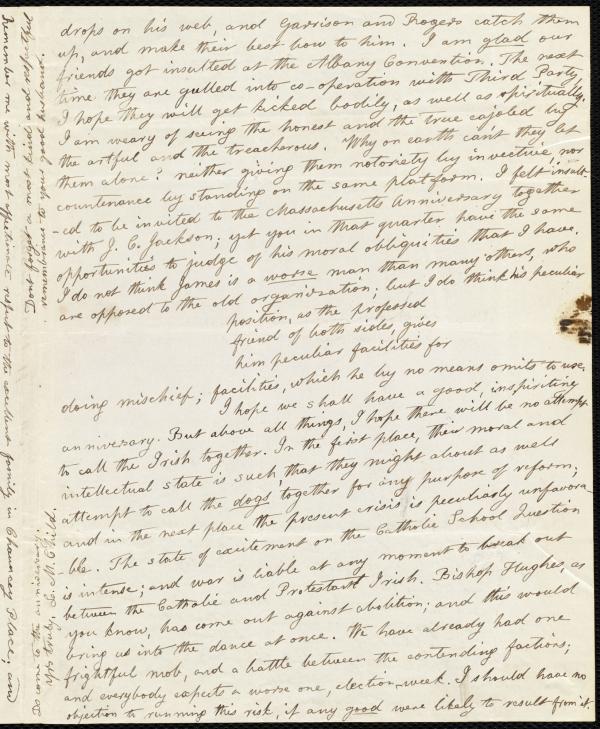 drops on his web, and Garrison and Rogers catch them
up, and make their best bow to him. I am glad our
friends got insulted at the Albany Convention. The next
time they are gulled into co-operation with Third Party,
I hope they will get kicked bodily, as well as spiritually.
I am weary of seeing the honest and the true cajoled by
the artful and the treacherous. Why on earth can't they let
them alone? neither giving them notoriety by invective, nor
countenance by standing on the same platform. I felt insult-
-ed to be invited to the Massachusetts Anniversary together
with J. C. Jackson; yet you in that quarter have the same
opportunities to judge of his moral obliquities that I have.
I do not think James is a worse man than many others, who
are opposed to the old organization; but I do think his peculiar
position, as the professed
friend of both sides, gives
him peculiar facilities for
doing mischief; facilities, which he by no means omits to use.
I hope we shall have a good, inspiriting
anniversary. But above all things, I hope there will be no attempt
to call the Irish together. In the first place, their moral and
intellectual state is such that they might about as well
attempt to call the dogs together for any purpose of reform;
and in the next place the present crisis is peculiarly unfavora-
-ble. The state of excitement on the Catholic School Question
is intense; and war is liable at any moment to break out
between the Catholic and Protestant Irish. Bishop Hughes, as
you know, has come out against abolition; and this would
bring us into the dance at once. We have already had one
frightful mob, and a battle between the contending factions;
and everybody expects a worse one, election week. I should have no
objection to running this risk, if any good were likely to result from it.
Remember me with most affectionate respect to the excellent family in Chauncey Place; and
remembrance to your good husband.
Don't forget
to come to the anniversary.
Yrs truly, L. M. Child.